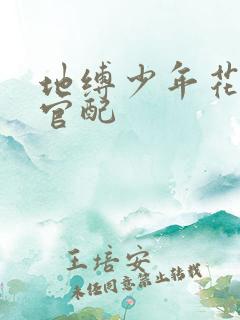 地缚少年花
官配
王培安
未经同意禁止转载